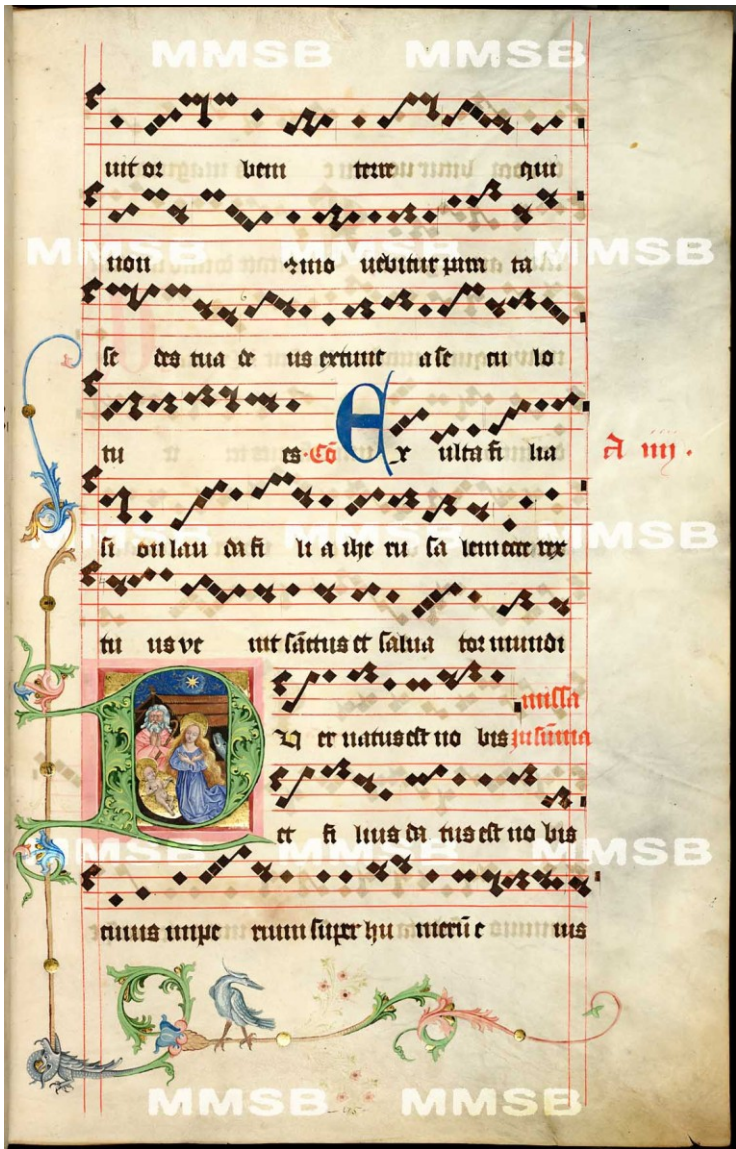 MMSB MMSB
uit or bem terre qui
MMSB MMSB MMSB
non cōmo uebitur para ta
se des tua de us ex tunc a se cu lo
tu es. Cō Ex ulta fi lia
A iiij.
si on lau da fi li a ihe ru sa lem ecce rex
MMSB MMSB MMSB
tu us ve nit sāctus et salua tor mundi
missa
Pu er natus est no bis in sūma
et fi lius da tus est no bis
MMSB MMSB MMSB
cuius impe rium super hu merū e ius
MMSB MMSB